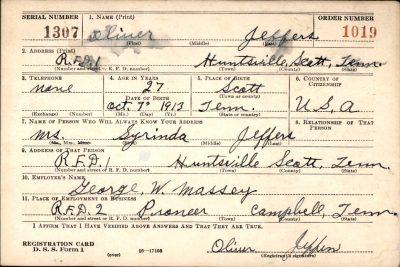 SERIAL NUMBER 1. NAME (Print) ORDER NUMBER
1307 Oliver Jeffers 1019
(First) (Middle) (Last)
2. ADDRESS (Print)
R.F.D. 1 Huntsville, Scott, Tenn.
(Number and street or R. F. D. number) (Town) (County) (State)
3. TELEPHONE 4. AGE IN YEARS 5. PLACE OF BIRTH 6. COUNTRY OF CITIZENSHIP
none 27 Scott
DATE OF BIRTH (Town or county)
Oct. 7 1913 Tenn. U.S.A
(Exchange) (Number) (Mo.) (Day) (Yr.) (State or country)
7. NAME OF PERSON WHO WILL ALWAYS KNOW YOUR ADDRESS 8. RELATIONSHIP OF THAT PERSON
Mrs. Syrinda Jeffers
(Mr., Mrs., Miss) (First) (Middle) (Last)
9. ADDRESS OF THAT PERSON
R.F.D. 1 Huntsville Scott, Tenn.
(Number and street or R. F. D. number) (Town) (County) (State)
10. EMPLOYER'S NAME
George W. Massey
11. PLACE OF EMPLOYMENT OR BUSINESS
R.F.D. 2 Pioneer Campbell, Tenn.
(Number and street or R. F. D. number) (Town) (County) (State)
I AFFIRM THAT I HAVE VERIFIED ABOVE ANSWERS AND THAT THEY ARE TRUE.
REGISTRATION CARD
D. S. S. Form 1 (over) 16—17105 Oliver Jeffers
(Registrant's signature)